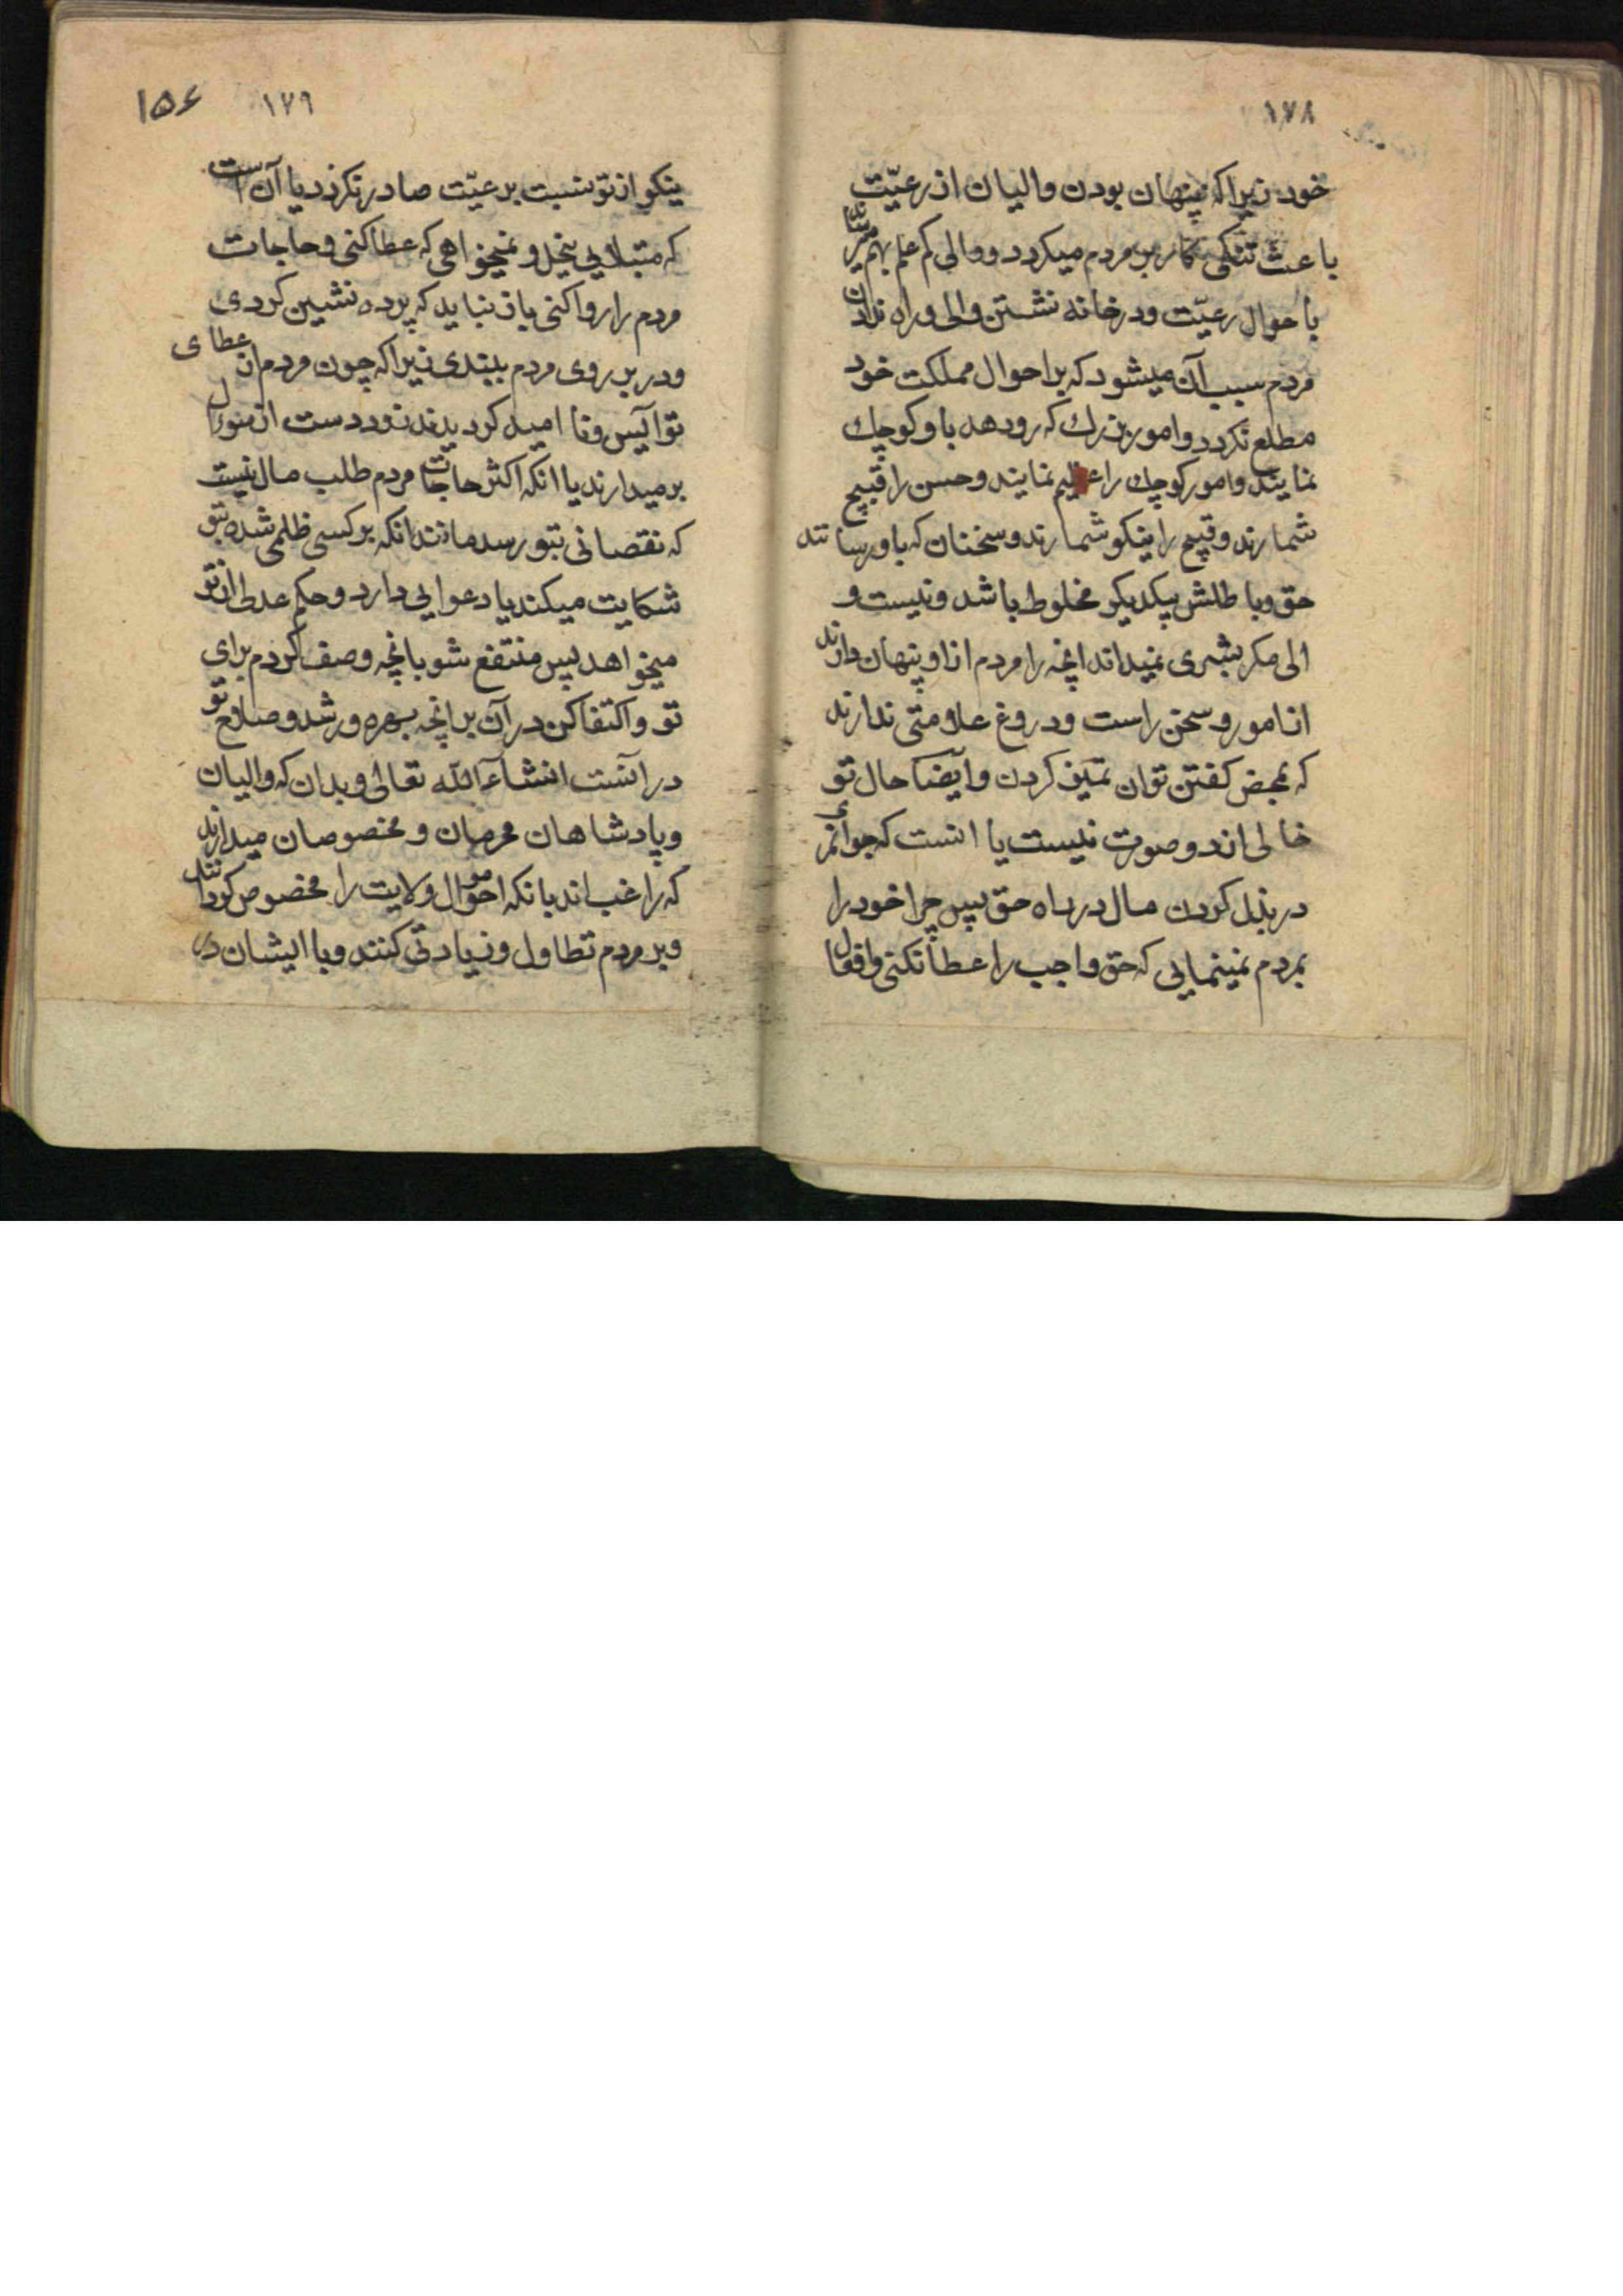 ۱۷۸
خود زیرا که پنهان بودن والیان از رعیّت
باعث تنکی کار بر مردم میکردد و والی کم علم بهم میرساند
باحوال رعیّت و در خانه نشستن والی و راه ندادن
مردم سبب آن میشود که بر احوال مملکت خود
مطلع نکردد و امور بزرك که رو دهد باو کوچك
نمایند و امور کوچك را عظیم نمایند و حسن را قبیح
شمارند و قبیح را نیکو شمارند و سخنان که باو رسانند
حق و باطلش بیکدیکر مخلوط باشد و نیست و
الی مکر بشری نمیداند انچه را مردم از او پنهان دارند
از امور و سخن راست و دروغ علامتی ندارند
که بمحض کفتن توان تمیز کردن و ایضا حال تو
خالی از دو صورت نیست یا انست که جوانمردی
در بذل کردن مال در راه حق پس چرا خود را
بمردم نمینمایی که حق واجب را عطا نکنی و افعال
۱۵۶ ۱۷۹
نیکو از تو نسبت برعیّت صادر نکردد یا آن است
که مبتلایی ببخل و نمیخواهی که عطا کنی و حاجات
مردم را روا کنی باز نباید که پرده نشین کردی
و در بر روی مردم ببندی زیرا که چون مردم از عطای
تو آیس و نا امید کردیدند زود دست از سؤال
بر میدارند یا انکه اکثر حاجات مردم طلب مال نیست
که نقصانی بتو رسد مانند انکه بر کسی ظلمی شده بتو
شکایت میکند یا دعوایی دارد و حکم عدل از تو
میخواهد پس منتفع شو بانچه وصف کردم برای
تو و اکتفا کن در آن بر انچه بهره و رشد و صلاح تو
در انست انشاءالله تعالی و بدان که والیان
و پادشاهان محرمان و مخصوصان میدارند
که راغب اند بانکه اموال ولایت را مخصوص خود دانند
و بر مردم تطاول و زیادتی کنند و با ایشان در